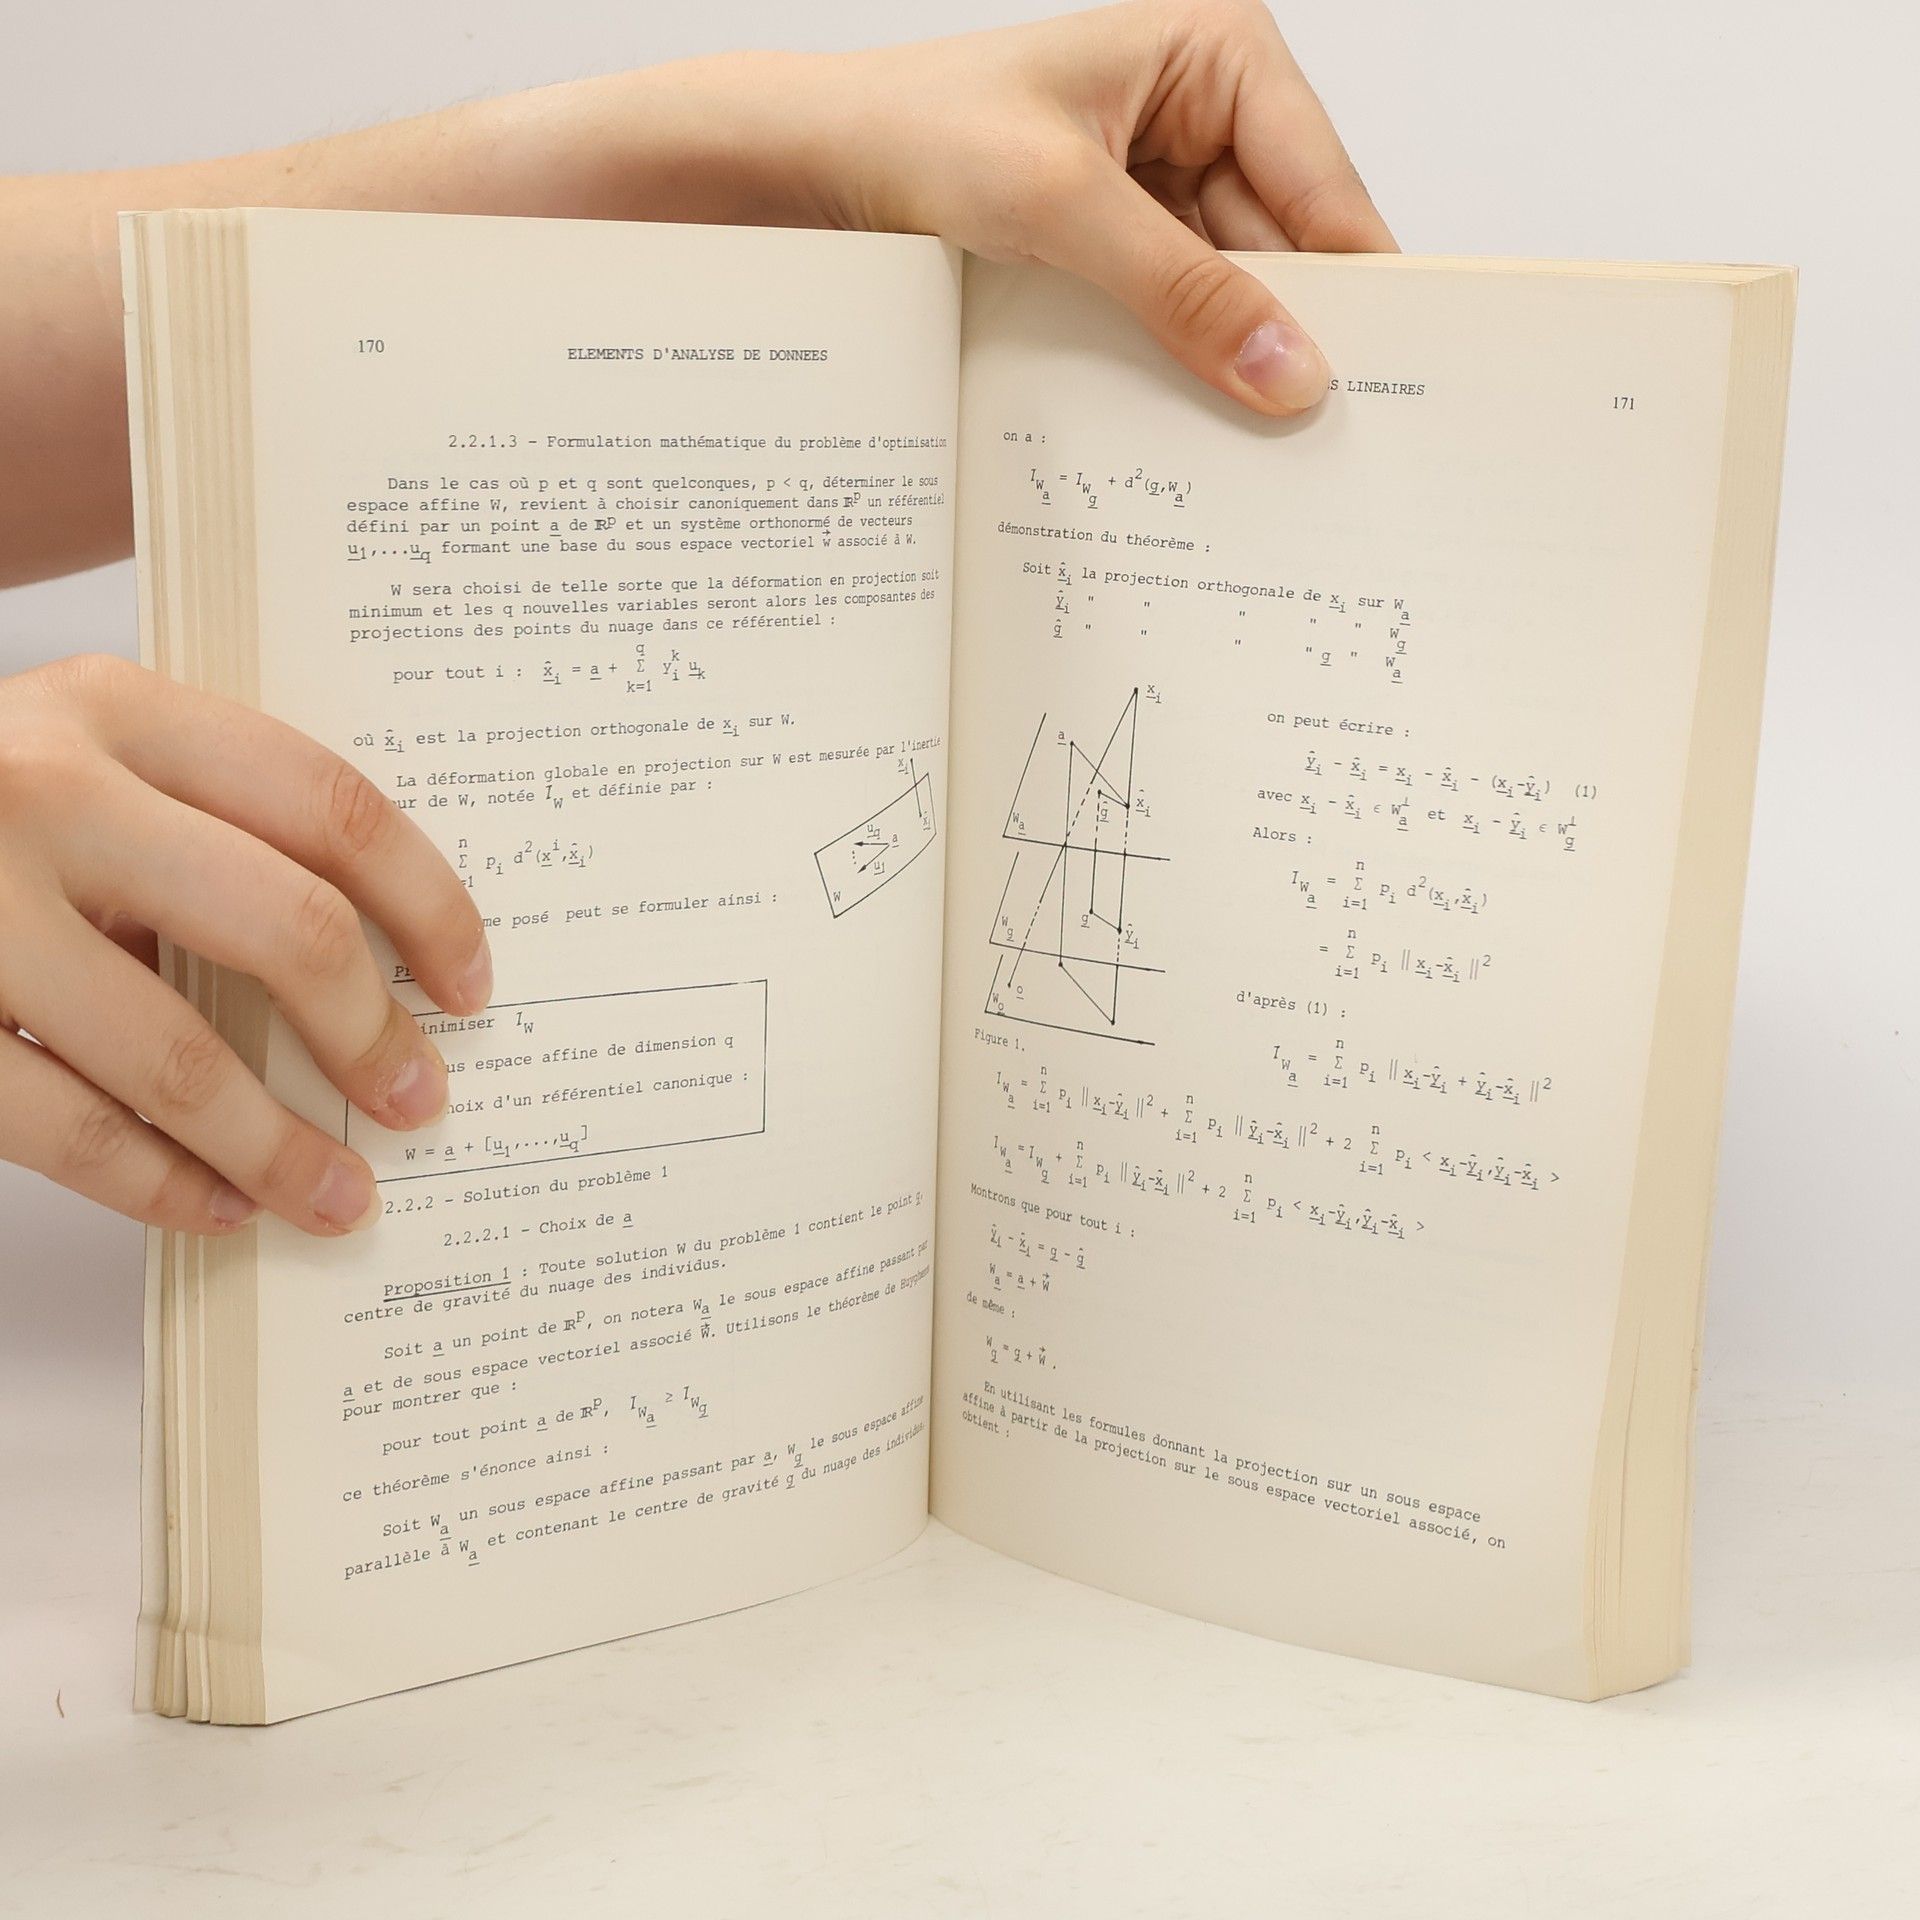 170
ELEMENTS D'ANALYSE DE DONNEES
2.2.1.3 - Formulation mathématique du problème d'optimisation
Dans le cas où p et q sont quelconques, p < q, déterminer le sous
espace affine W, revient à choisir canoniquement dans ℝᵖ un référentiel
défini par un point a de ℝᵖ et un système orthonormé de vecteurs
u₁,...u_q formant une base du sous espace vectoriel w⃗ associé à W.
W sera choisi de telle sorte que la déformation en projection soit
minimum et les q nouvelles variables seront alors les composantes des
projections des points du nuage dans ce référentiel :
pour tout i : x̂_i = a + Σ_{k=1}^{q} y_i^k u_k
où x̂_i est la projection orthogonale de x_i sur W.
La déformation globale en projection sur W est mesurée par l'inertie
de W, notée I_W et définie par :
n
Σ p_i d²(x^i,x̂_i)
=1
x_i
x̂_i
u_q
a
u₁
W
posé peut se formuler ainsi :
I_W
espace affine de dimension q
d'un référentiel canonique :
W = a + [u₁,...,u_q]
2.2.2 - Solution du problème 1
2.2.2.1 - Choix de a
Proposition 1 : Toute solution W du problème 1 contient le point g,
centre de gravité du nuage des individus.
Soit a un point de ℝᵖ, on notera W_a le sous espace affine passant par
a et de sous espace vectoriel associé W⃗. Utilisons le théorème de Huyghens
pour montrer que :
pour tout point a de ℝᵖ, I_{W_a} ≥ I_{W_g}
ce théorème s'énonce ainsi :
Soit W_a un sous espace affine passant par a, W_g le sous espace affine
parallèle à W_a et contenant le centre de gravité g du nuage des individus,
LINEAIRES
171
on a :
I_{W_a} = I_{W_g} + d²(g,W_a)
démonstration du théorème :
Soit x̂_i la projection orthogonale de x_i sur W_a
ŷ_i " " " " " W_g
ĝ " " " " g " W_a
x_i
a
ĝ
x̂_i
W_a
W_g
g
ŷ_i
o
W_o
Figure 1.
on peut écrire :
ŷ_i - x̂_i = x_i - x̂_i - (x_i-ŷ_i) (1)
avec x_i - x̂_i ϵ W_a^⊥ et x_i - ŷ_i ϵ W_g^⊥
Alors :
I_{W_a} = Σ_{i=1}^{n} p_i d²(x_i,x̂_i)
= Σ_{i=1}^{n} p_i ||x_i-x̂_i||²
d'après (1) :
I_{W_a} = Σ_{i=1}^{n} p_i ||x_i-ŷ_i + ŷ_i-x̂_i||²
I_{W_a} = Σ_{i=1}^{n} p_i ||x_i-ŷ_i||² + Σ_{i=1}^{n} p_i ||ŷ_i-x̂_i||² + 2 Σ_{i=1}^{n} p_i < x_i-ŷ_i,ŷ_i-x̂_i >
I_{W_a} = I_{W_g} + Σ_{i=1}^{n} p_i ||ŷ_i-x̂_i||² + 2 Σ_{i=1}^{n} p_i < x_i-ŷ_i,ŷ_i-x̂_i >
Montrons que pour tout i :
ŷ_i - x̂_i = g - ĝ
W_a = a + W⃗
de même :
W_g = g + W⃗.
En utilisant les formules donnant la projection sur un sous espace
affine à partir de la projection sur le sous espace vectoriel associé, on
obtient :